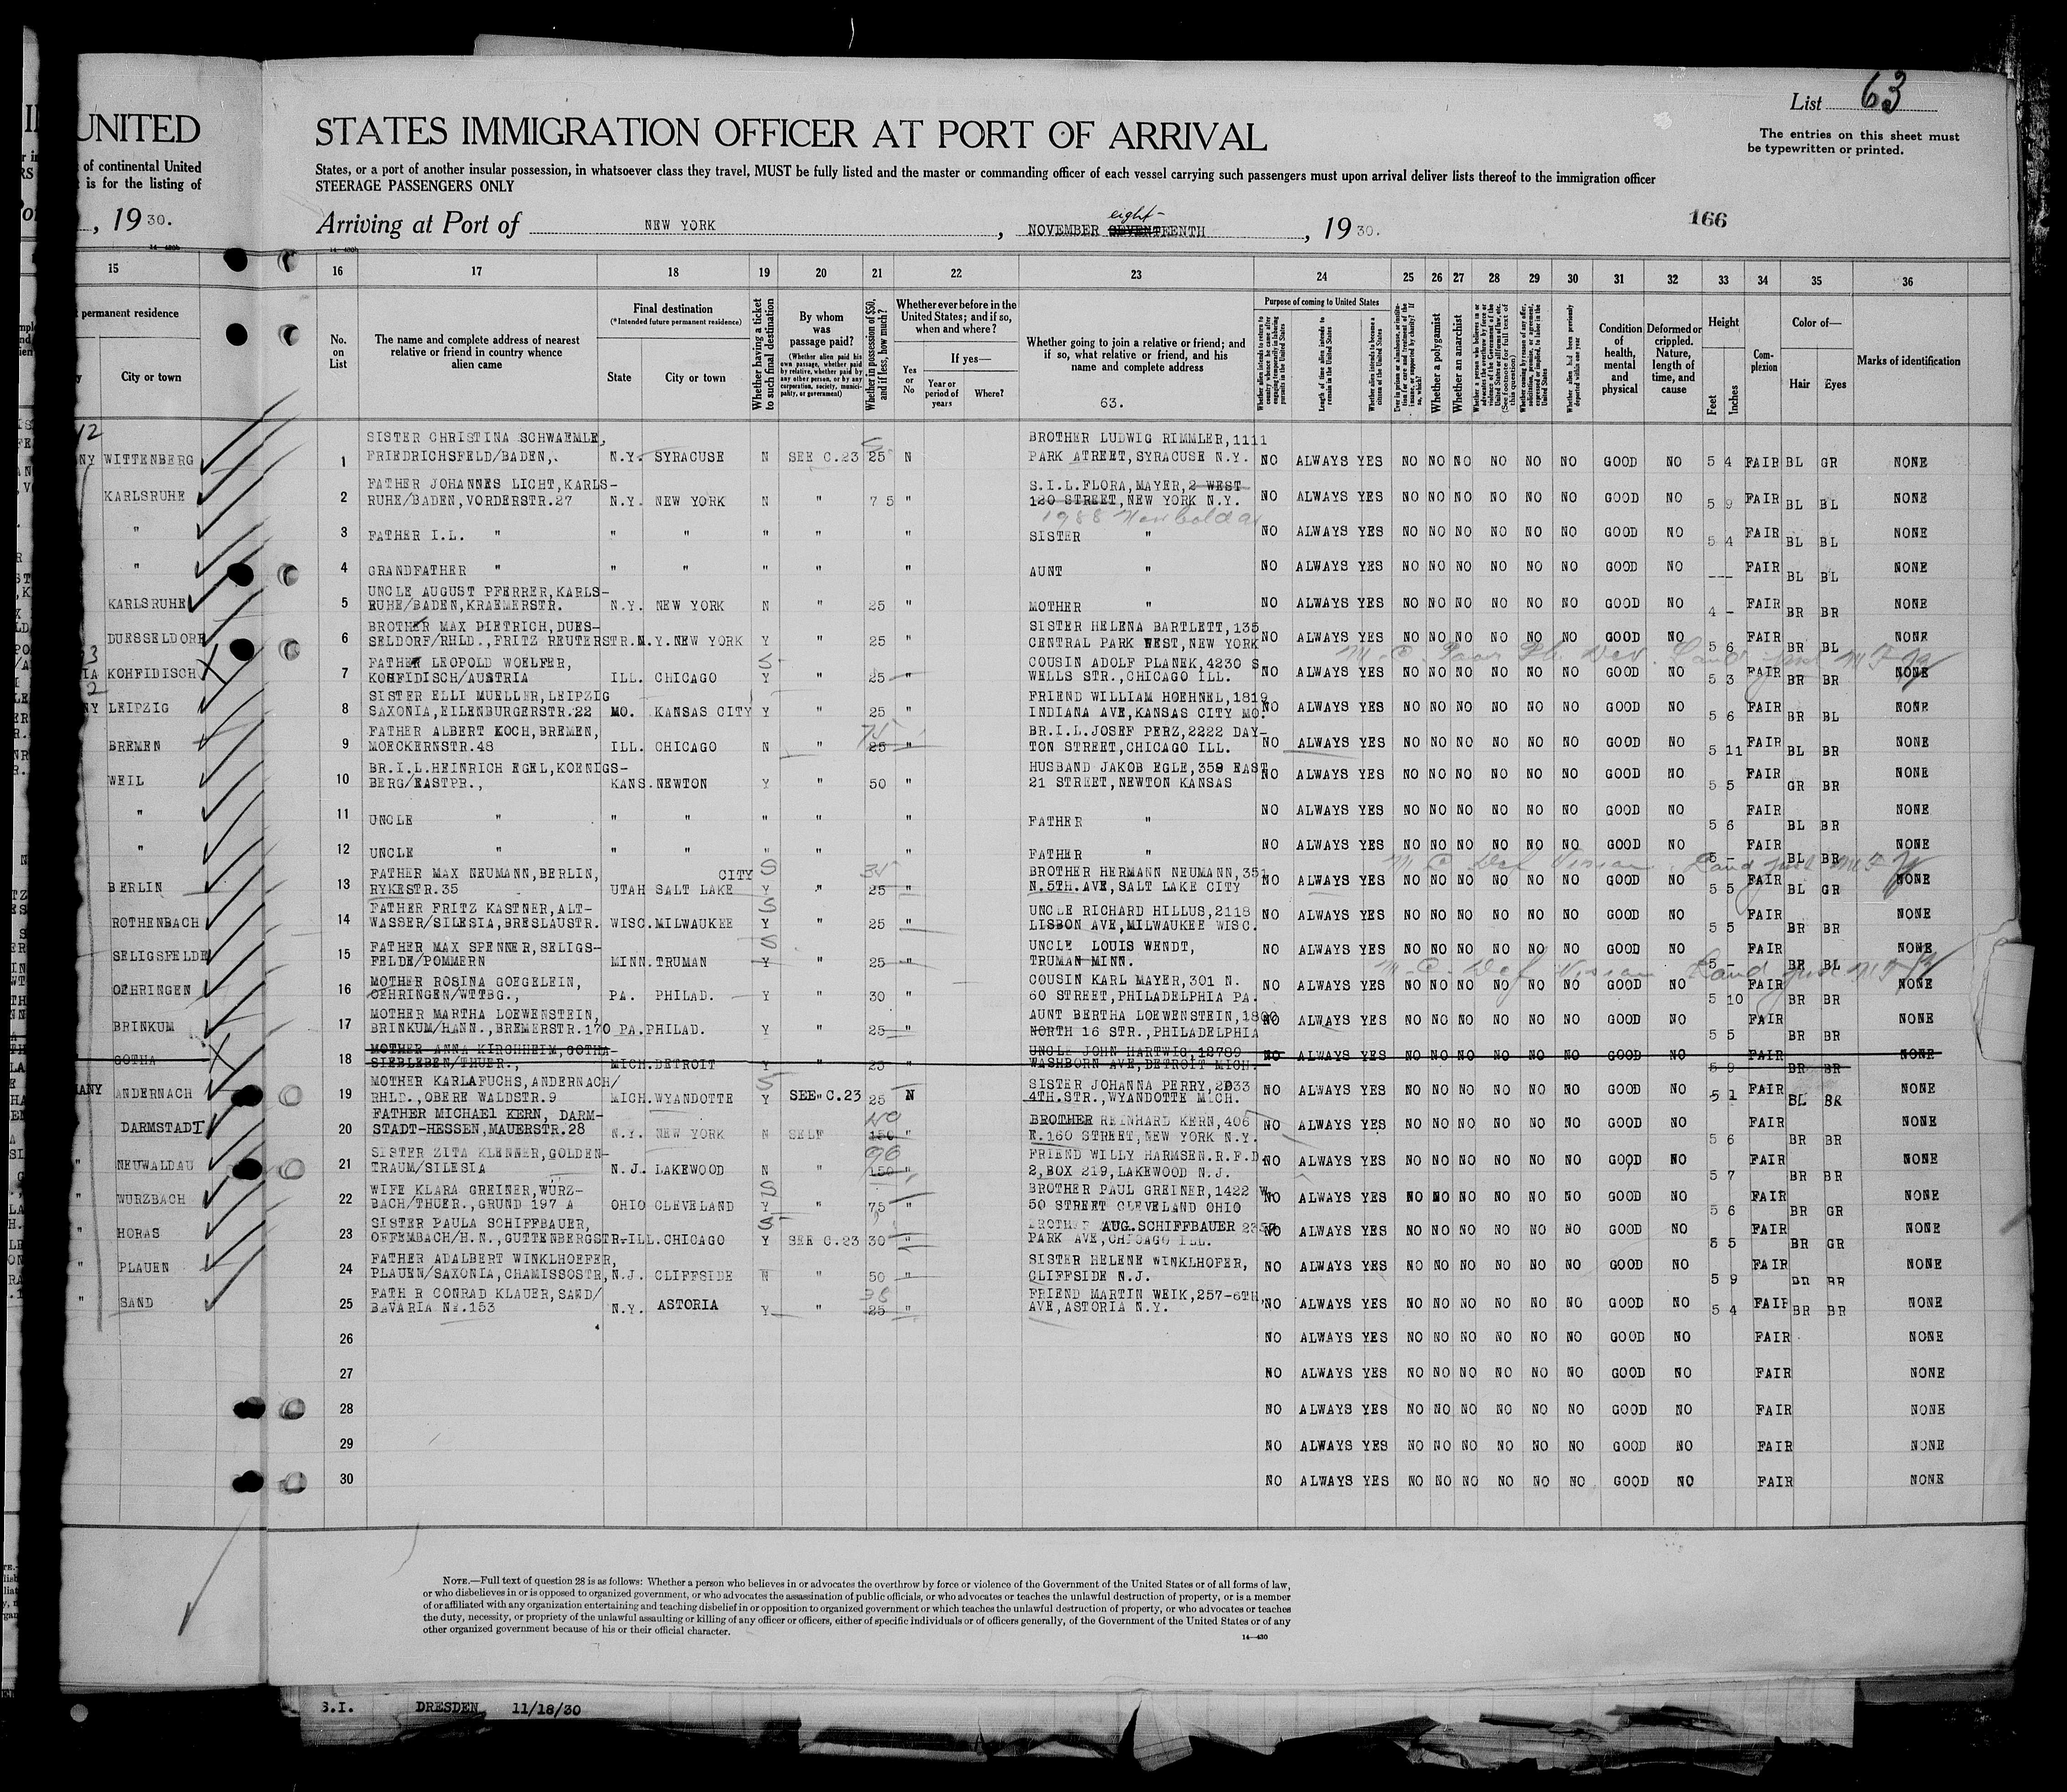 List 63
UNITED STATES IMMIGRATION OFFICER AT PORT OF ARRIVAL
The entries on this sheet must
be typewritten or printed.
of continental United States, or a port of another insular possession, in whatsoever class they travel, MUST be fully listed and the master or commanding officer of each vessel carrying such passengers must upon arrival deliver lists thereof to the immigration officer
is for the listing of STEERAGE PASSENGERS ONLY
, 1930. Arriving at Port of NEW YORK, NOVEMBER eight- SEVENTEENTH, 1930.
166
15 16 17 18 19 20 21 22 23 24 25 26 27 28 29 30 31 32 33 34 35 36
permanent residence
City or town
No. on List
The name and complete address of nearest relative or friend in country whence alien came
Final destination
(*Intended future permanent residence)
State City or town
Whether having a ticket to such final destination
By whom was passage paid?
(Whether alien paid his own passage, whether paid by relative, whether paid by any other person, or by any corporation, society, municipality, or government)
Whether in possession of $50, and if less, how much?
Whether ever before in the United States; and if so, when and where?
Yes or No
If yes—
Year or period of years Where?
Whether going to join a relative or friend; and if so, what relative or friend, and his name and complete address
63.
Purpose of coming to United States
Whether a polygamist
Whether an anarchist
Condition of health, mental and physical
Deformed or crippled. Nature, length of time, and cause
Height
Feet Inches
Complexion
Color of—
Hair Eyes
Marks of identification
WITTENBERG 1 SISTER CHRISTINA SCHWAEMLE, FRIEDRICHSFELD/BADEN,. N.Y. SYRACUSE N SEE C.23 25 N BROTHER LUDWIG RIMMLER,1111 PARK ATREET,SYRACUSE N.Y. NO ALWAYS YES NO NO NO NO NO NO GOOD NO 5 4 FAIR BL GR NONE
KARLSRUHE 2 FATHER JOHANNES LICHT,KARLS- RUHE/BADEN,VORDERSTR.27 N.Y. NEW YORK N " 7 5 " S.I.L.FLORA,MAYER,2 WEST 120 STREET,NEW YORK N.Y. NO ALWAYS YES NO NO NO NO NO NO GOOD NO 5 9 FAIR BL BL NONE
1988
" 3 FATHER I.L. " " " " " " SISTER " NO ALWAYS YES NO NO NO NO NO NO GOOD NO 5 4 FAIR BL BL NONE
" 4 GRANDFATHER " " " " " " AUNT " NO ALWAYS YES NO NO NO NO NO NO GOOD NO --- FAIR BL BL NONE
KARLSRUHE 5 UNCLE AUGUST PFERRER,KARLS- RUHE/BADEN,KRAEMERSTR. N.Y. NEW YORK N " 25 " MOTHER " NO ALWAYS YES NO NO NO NO NO NO GOOD NO 4 - FAIR BR BR NONE
DUESSELDORF 6 BROTHER MAX DIETRICH,DUES- SELDORF/RHLD.,FRITZ REUTERSTR.N.Y.NEW YORK Y " 25 " SISTER HELENA BARTLETT,135 CENTRAL PARK WEST,NEW YORK NO ALWAYS YES NO NO NO NO NO NO GOOD NO 5 6 FAIR BR BL NONE
KOHFIDISCH 7 FATHER LEOPOLD WOELFER, KOHFIDISCH/AUSTRIA ILL. CHICAGO Y " 25 " COUSIN ADOLF PLANEK,4230 S. WELLS STR.,CHICAGO ILL. NO ALWAYS YES NO NO NO NO NO NO GOOD NO 5 3 FAIR BR BR NONE
LEIPZIG 8 SISTER ELLI MUELLER,LEIPZIG SAXONIA,EILENBURGERSTR.22 MO. KANSAS CITY Y " 25 " FRIEND WILLIAM HOEHNEL,1819 INDIANA AVE,KANSAS CITY MO. NO ALWAYS YES NO NO NO NO NO NO GOOD NO 5 6 FAIR BR BL NONE
BREMEN 9 FATHER ALBERT KOCH,BREMEN, MOECKERNSTR.48 ILL. CHICAGO N " 75 25 " BR.I.L.JOSEF PERZ,2222 DAY- TON STREET,CHICAGO ILL. NO ALWAYS YES NO NO NO NO NO NO GOOD NO 5 11 FAIR BL BR NONE
WEIL 10 BR.I.L.HEINRICH EGEL,KOENIGS- BERG/EASTPR., KANS.NEWTON Y " 50 " HUSBAND JAKOB EGLE,359 EAST 21 STREET,NEWTON KANSAS NO ALWAYS YES NO NO NO NO NO NO GOOD NO 5 5 FAIR GR BR NONE
" 11 UNCLE " " " " " " FATHER " NO ALWAYS YES NO NO NO NO NO NO GOOD NO 5 6 FAIR BL BR NONE
" 12 UNCLE " " " " " " FATHER " NO ALWAYS YES NO NO NO NO NO NO GOOD NO 5 - FAIR BL BR NONE
BERLIN 13 FATHER MAX NEUMANN,BERLIN, RYKESTR.35 UTAH SALT LAKE CITY S Y " 35 25 " BROTHER HERMANN NEUMANN,351 N.5TH.AVE,SALT LAKE CITY NO ALWAYS YES NO NO NO NO NO NO GOOD NO 5 5 FAIR BL GR NONE
ROTHENBACH 14 FATHER FRITZ KASTNER,ALT- WASSER/SILESIA,BRESLAUSTR. WISC.MILWAUKEE S Y " 25 UNCLE RICHARD HILLUS,2118 LISBON AVE,MILWAUKEE WISC. NO ALWAYS YES NO NO NO NO NO NO GOOD NO 5 5 FAIR BR BR NONE
SELIGSFELDE 15 FATHER MAX SPENNER,SELIGS- FELDE/POMMERN MINN.TRUMAN S Y " 25 " UNCLE LOUIS WENDT, TRUMAN MINN. NO ALWAYS YES NO NO NO NO NO NO GOOD NO 5 - FAIR BR BL NONE
OEHRINGEN 16 MOTHER ROSINA GOEGELEIN, OEHRINGEN/WTTBG., PA. PHILAD. Y " 30 " COUSIN KARL MAYER,301 N. 60 STREET,PHILADELPHIA PA. NO ALWAYS YES NO NO NO NO NO NO GOOD NO 5 10 FAIR BR BR NONE
BRINKUM 17 MOTHER MARTHA LOEWENSTEIN, BRINKUM/HANN.,BREMERSTR.170 PA.PHILAD. Y " 25 " AUNT BERTHA LOEWENSTEIN,1800 NORTH 16 STR.,PHILADELPHIA NO ALWAYS YES NO NO NO NO NO NO GOOD NO 5 5 FAIR BR BR NONE
GOTHA 18 MOTHER ANNA KIRCHHEIM,GOTHA- SIEBLEBEN/THUER., MICH.DETROIT Y " 25 " UNCLE JOHN HARTWIG,12789 WASHBORN AVE,DETROIT MICH. NO ALWAYS YES NO NO NO NO NO NO GOOD NO 5 9 FAIR BR BR NONE
ANDERNACH 19 MOTHER KARLAFUCHS,ANDERNACH/ RHLD.,OBERE WALDSTR.9 MICH.WYANDOTTE S Y SEE C.23 25 N SISTER JOHANNA PERRY,2033 4TH.STR.,WYANDOTTE MICH. NO ALWAYS YES NO NO NO NO NO NO GOOD NO 5 1 FAIR BL BR NONE
DARMSTADT 20 FATHER MICHAEl KERN, DARM- STADT-HESSEN,MAUERSTR.28 N.Y. NEW YORK N SELF 150 " BROTHER REINHARD KERN,406 E.160 STREET,NEW YORK N.Y. NO ALWAYS YES NO NO NO NO NO NO GOOD NO 5 6 FAIR BR BR NONE
" NEUWALDAU 21 SISTER ZITA KLENNER,GOLDEN- TRAUM/SILESIA N.J. LAKEWOOD N " 90 150 " FRIEND WILLY HARMSEN.R.F.D. 2,BOX 219,LAKEWOOD N.J. NO ALWAYS YES NO NO NO NO NO NO GOOD NO 5 7 FAIR BR BR NONE
" WURZBACH 22 WIFE KLARA GREINER,WURZ- BACH/THUER.,GRUND 197 A OHIO CLEVELAND S Y " 75 " BROTHER PAUL GREINER,1422 W. 50 STREET CLEVELAND OHIO NO ALWAYS YES NO NO NO NO NO NO GOOD NO 5 6 FAIR BR GR NONE
" HORAS 23 SISTER PAULA SCHIFFBAUER, OFFEMBACH/H.N.,GUTTENBERGSTR-ILL.CHICAGO S Y SEE C.23 30 " BROTHER AUG.SCHIFFBAUER PARK AVE,CHICAGO ILL. NO ALWAYS YES NO NO NO NO NO NO GOOD NO 5 5 FAIR BR GR NONE
" PLAUEN 24 FATHER ADALBERT WINKLHOEFER, PLAUEN/SAXONIA,CHAMISSOSTR,N.J. CLIFFSIDE N " 50 " SISTER HELENE WINKLHOFER, CLIFFSIDE N.J. NO ALWAYS YES NO NO NO NO NO NO GOOD NO 5 9 FAIR BR BR NONE
" SAND 25 FATH R CONRAD KLAUER,SAND/ BAVARIA NR.153 N.Y. ASTORIA Y " 38 25 " FRIEND MARTIN WEIK,257-6TH, AVE,ASTORIA N.Y. NO ALWAYS YES NO NO NO NO NO NO GOOD NO 5 4 FAIR BR BR NONE
26 NO ALWAYS YES NO NO NO NO NO NO GOOD NO FAIR NONE
27 NO ALWAYS YES NO NO NO NO NO NO GOOD NO FAIR NONE
28 NO ALWAYS YES NO NO NO NO NO NO GOOD NO FAIR NONE
29 NO ALWAYS YES NO NO NO NO NO NO GOOD NO FAIR NONE
30 NO ALWAYS YES NO NO NO NO NO NO GOOD NO FAIR NONE
NOTE.—Full text of question 28 is as follows: Whether a person who believes in or advocates the overthrow by force or violence of the Government of the United States or of all forms of law,
or who disbelieves in or is opposed to organized government, or who advocates the assassination of public officials, or who advocates or teaches the unlawful destruction of property, or is a member
of or affiliated with any organization entertaining and teaching disbelief in or opposition to organized government or which teaches the unlawful destruction of property, or who advocates or teaches
the duty, necessity, or propriety of the unlawful assaulting or killing of any officer or officers, either of specific individuals or of officers generally, of the Government of the United States or of any
other organized government because of his or their official character.
14—430
S.I. DRESDEN 11/18/30